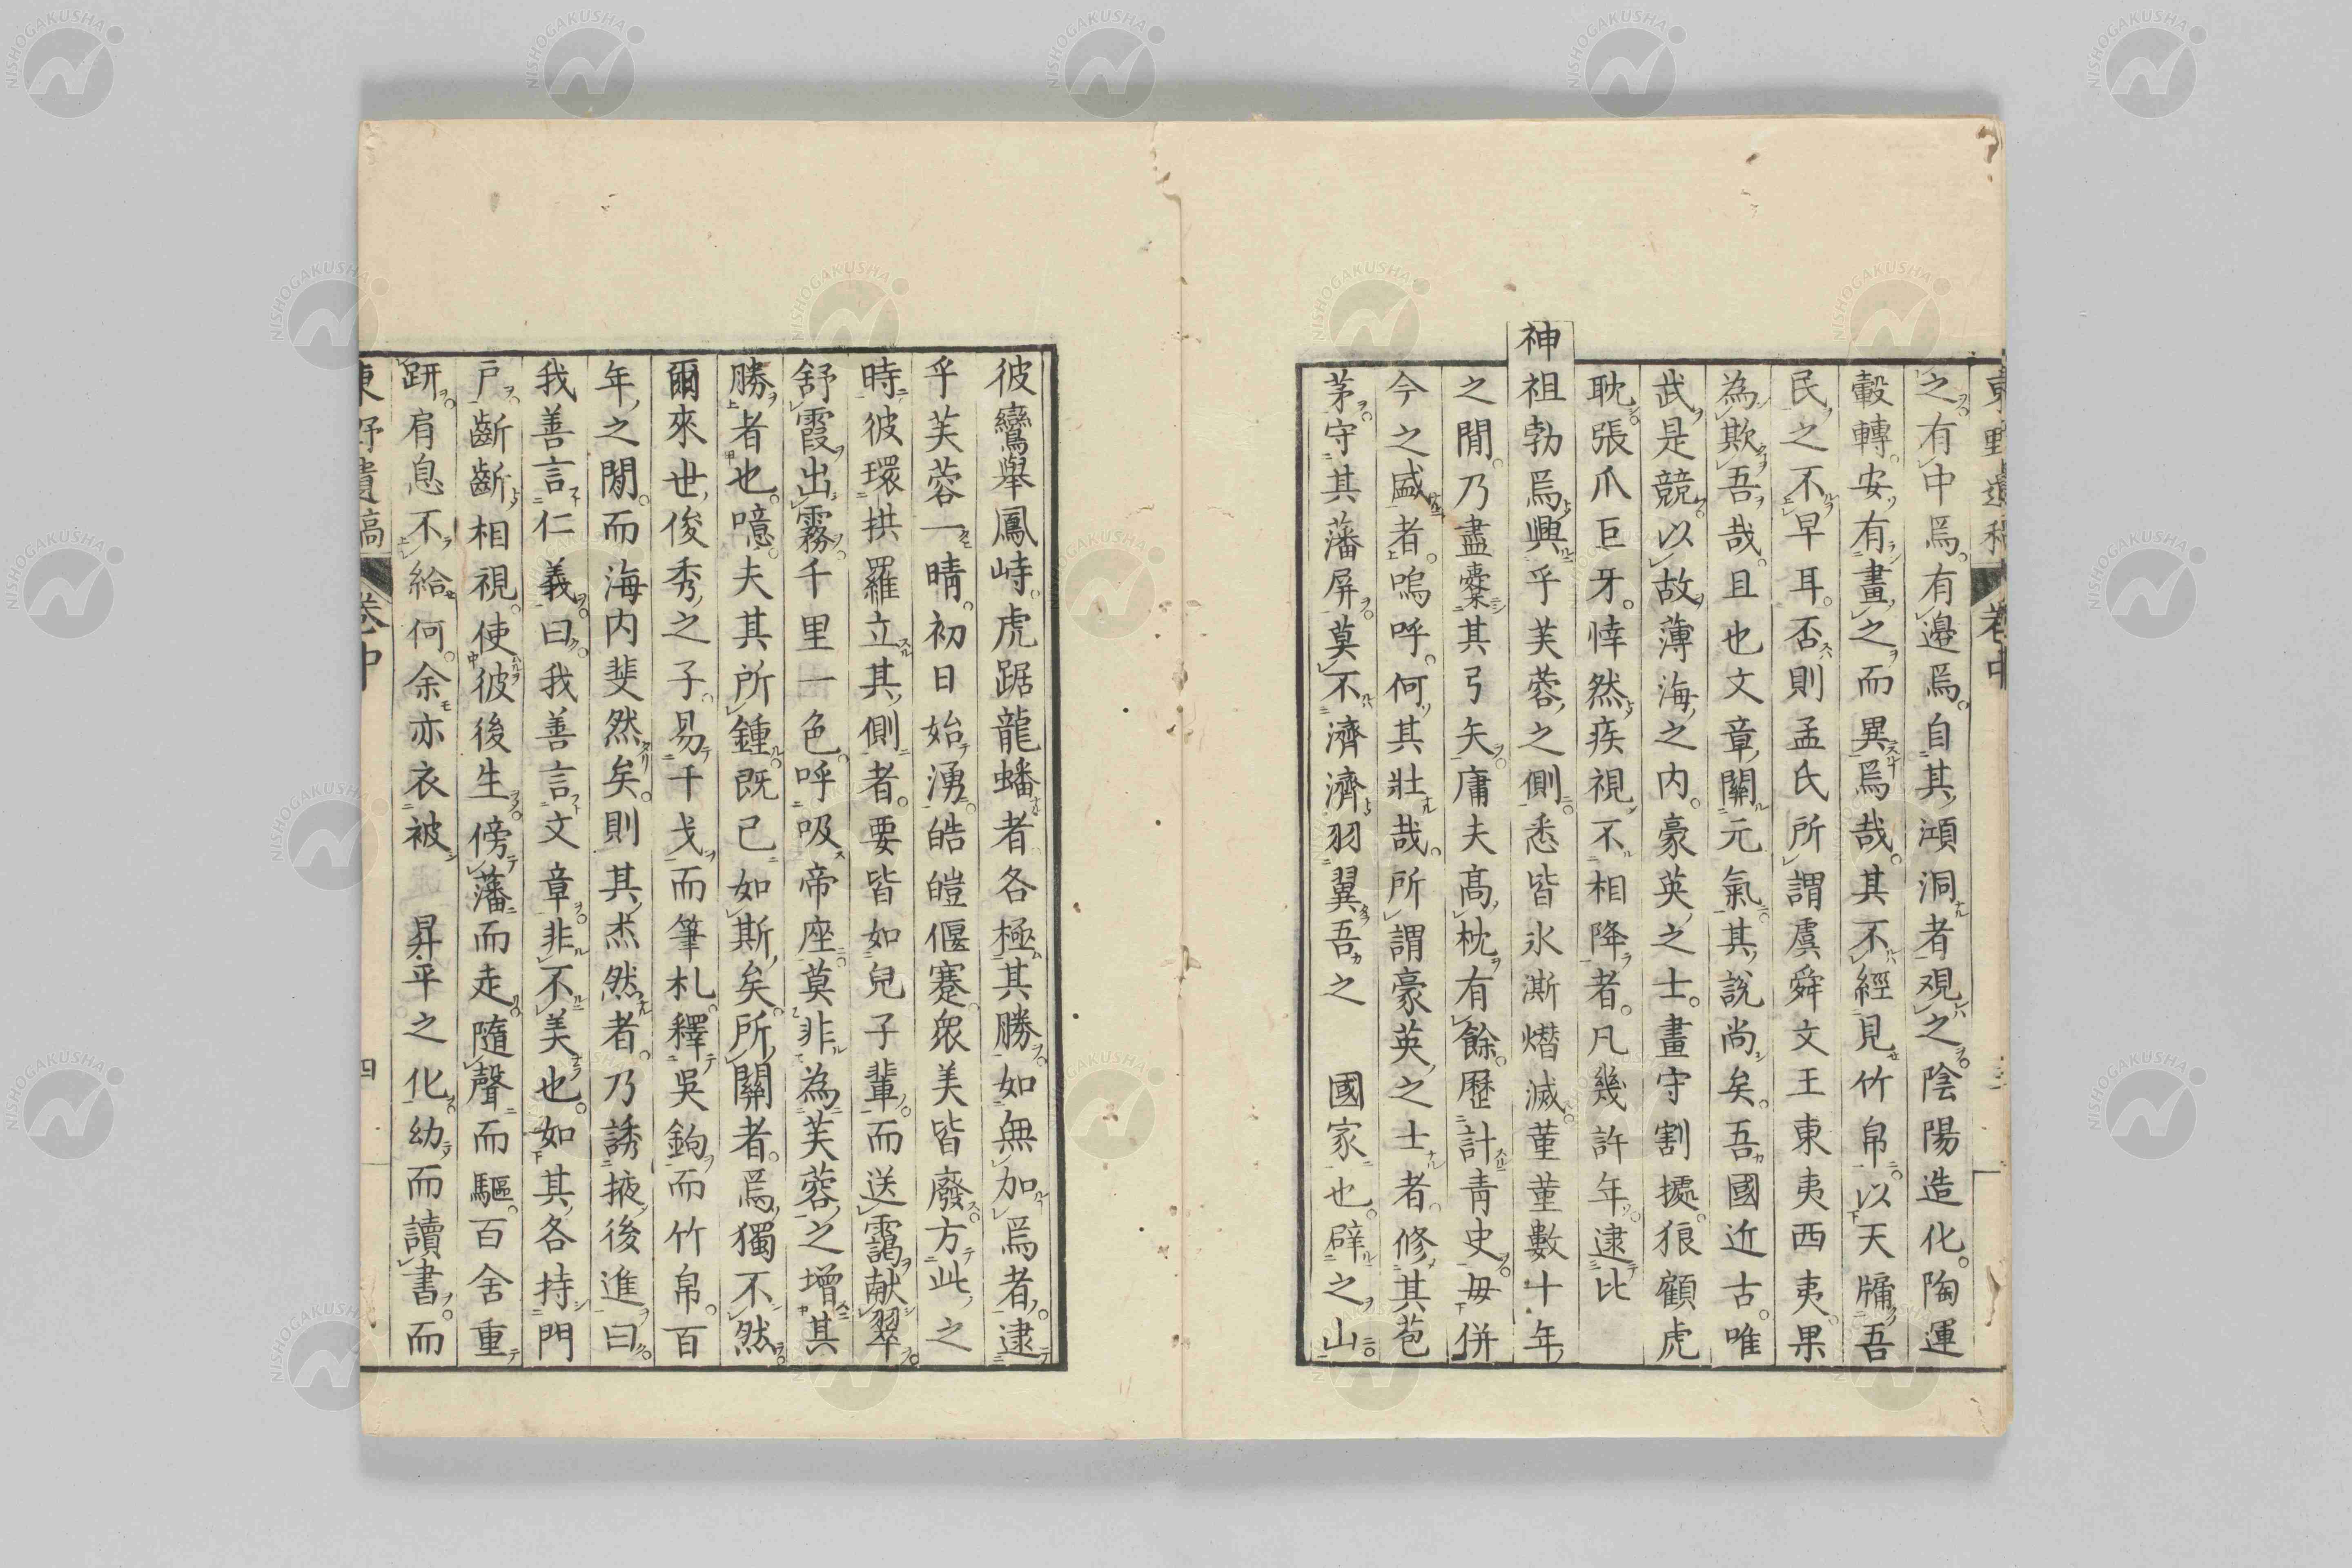 東野遺稿 卷中
之有中焉。有邊焉。自其澒洞者觀之。陰陽造化。陶運
轂轉。安有畫之而異焉哉。其不經見竹帛。以天牖吾
民之不早耳。否則孟氏所謂虞舜文王東夷西夷。果
為欺吾哉。且也文章關元氣。其說尚矣。吾國近古。唯
武是競。以故薄海之内。豪英之士。畫守割據。狼顧虎
耽。張爪巨牙。悻然疾視。不相降者。凡幾許年。逮比
神祖勃焉興乎芙蓉之側。悉皆氷澌熸滅。董董數十年
之閒。乃盡櫜其弓矢。庸夫高枕有餘。歷計青史。毋併
今之盛者。嗚呼。何其壯哉。所謂豪英之士者。修其苞
茅。守其藩屏。莫不濟濟羽翼吾之 國家也。辟之山
彼鸞舉鳳峙。虎踞龍蟠者各極其勝。如無加焉者。逮
乎芙蓉一晴。初日始湧。皓皚偃蹇。衆美皆廢。方此之
時。彼環拱羅立其側者。要皆如兒子輩。而送靄獻翠。
舒霞出霧。千里一色。呼吸帝座。莫非為芙蓉之增其
勝者也。噫。夫其所鍾既已如斯矣。所關者焉獨不然。
爾來世俊秀之子。易干戈而筆札。釋吳鉤而竹帛。百
年之閒。而海内斐然矣。則其烝然者。乃誘掖後進曰。
我善言仁義。曰。我善言文章。非不美也。如其各持門
戶。齗齗相視。使彼後生。傍藩而走。隨聲而驅。百舍重
趼。肩息不給何。余亦衣被 昇平之化。幼而讀書。而
東野遺稿 卷中 四